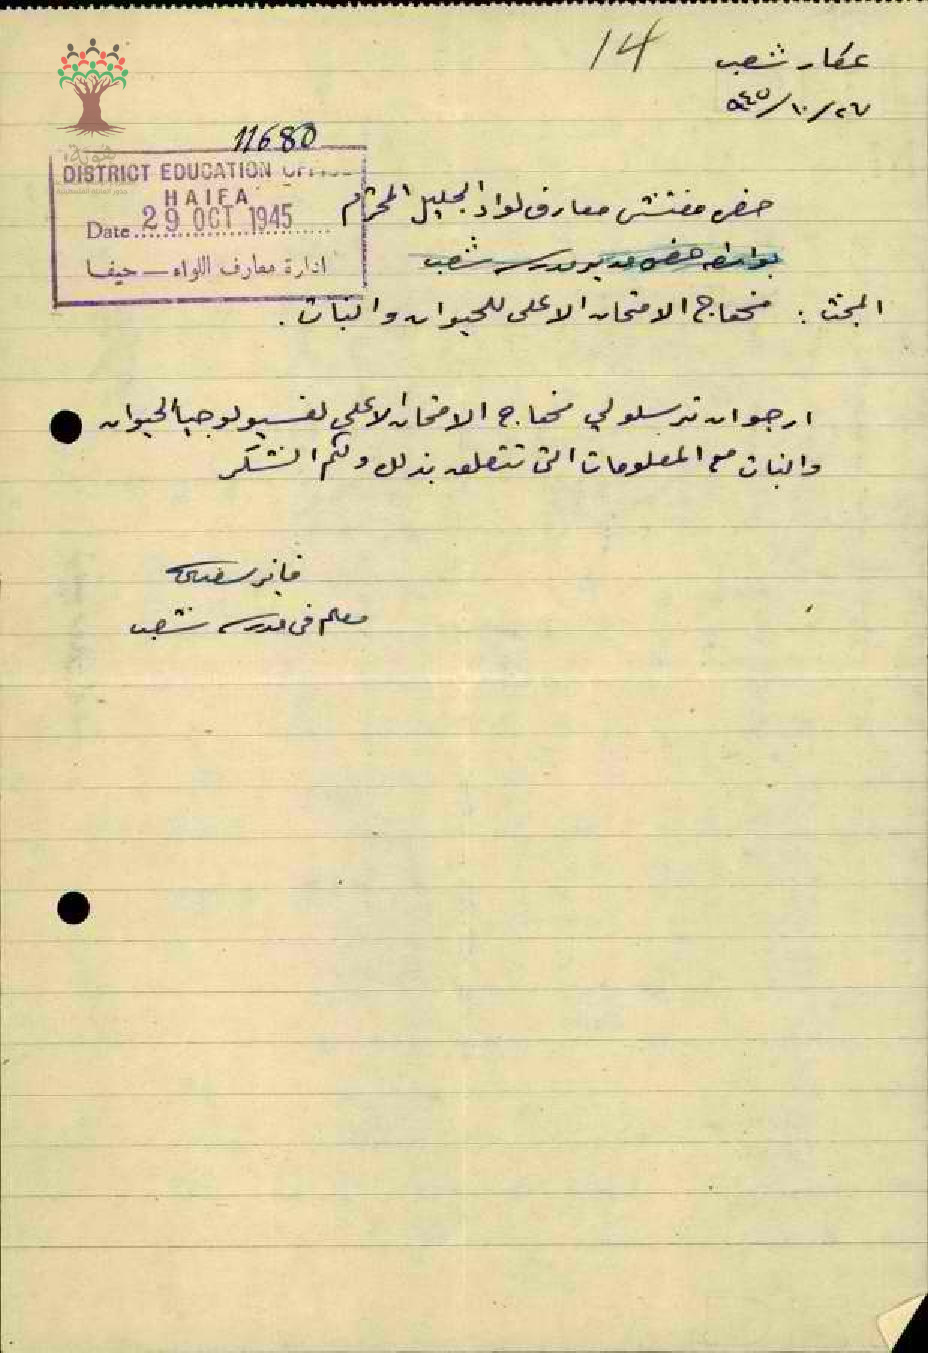 14
عكا، شعب
٢٦/١٠/٩٤٥
11680
DISTRICT EDUCATION OFFICE
HAIFA
Date 29 OCT 1945
ادارة معارف اللواء — حيفا
حضرة مفتش معارف لواء الجليل المحترم
بواسطة حضرة مدير مدرسة شعب
المبحث : منهاج الامتحان الاعلى للحيوان والنبات .
ارجو ان ترسلوا لي منهاج الامتحان الاعلى لفسيولوجيا الحيوان
والنبات مع المعلومات التي تتعلق بذلك ولكم الشكر
فايز
معلم في مدرسة شعب